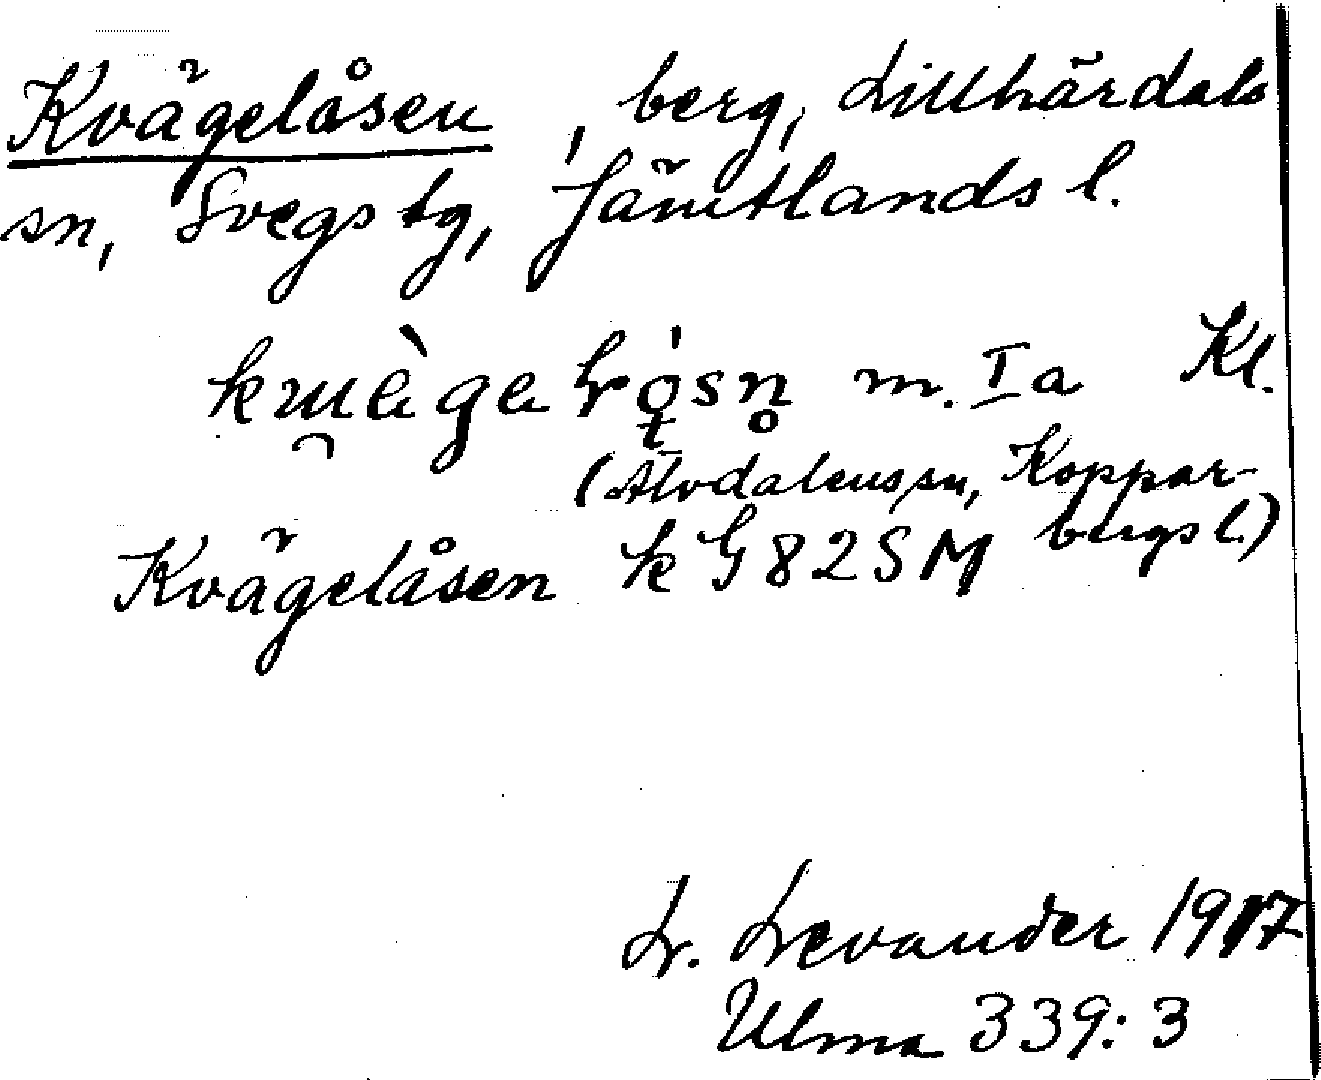 Kvägelåsen, berg, Lillhärdals
sn, Svegs tg, Jämtlands l.
m. Ia Kl.
(Älvdalens sn, Koppar-
bergs l.)
Kvägelåsen k G 82 SM
L. Levander 1917
Ulma 339:3